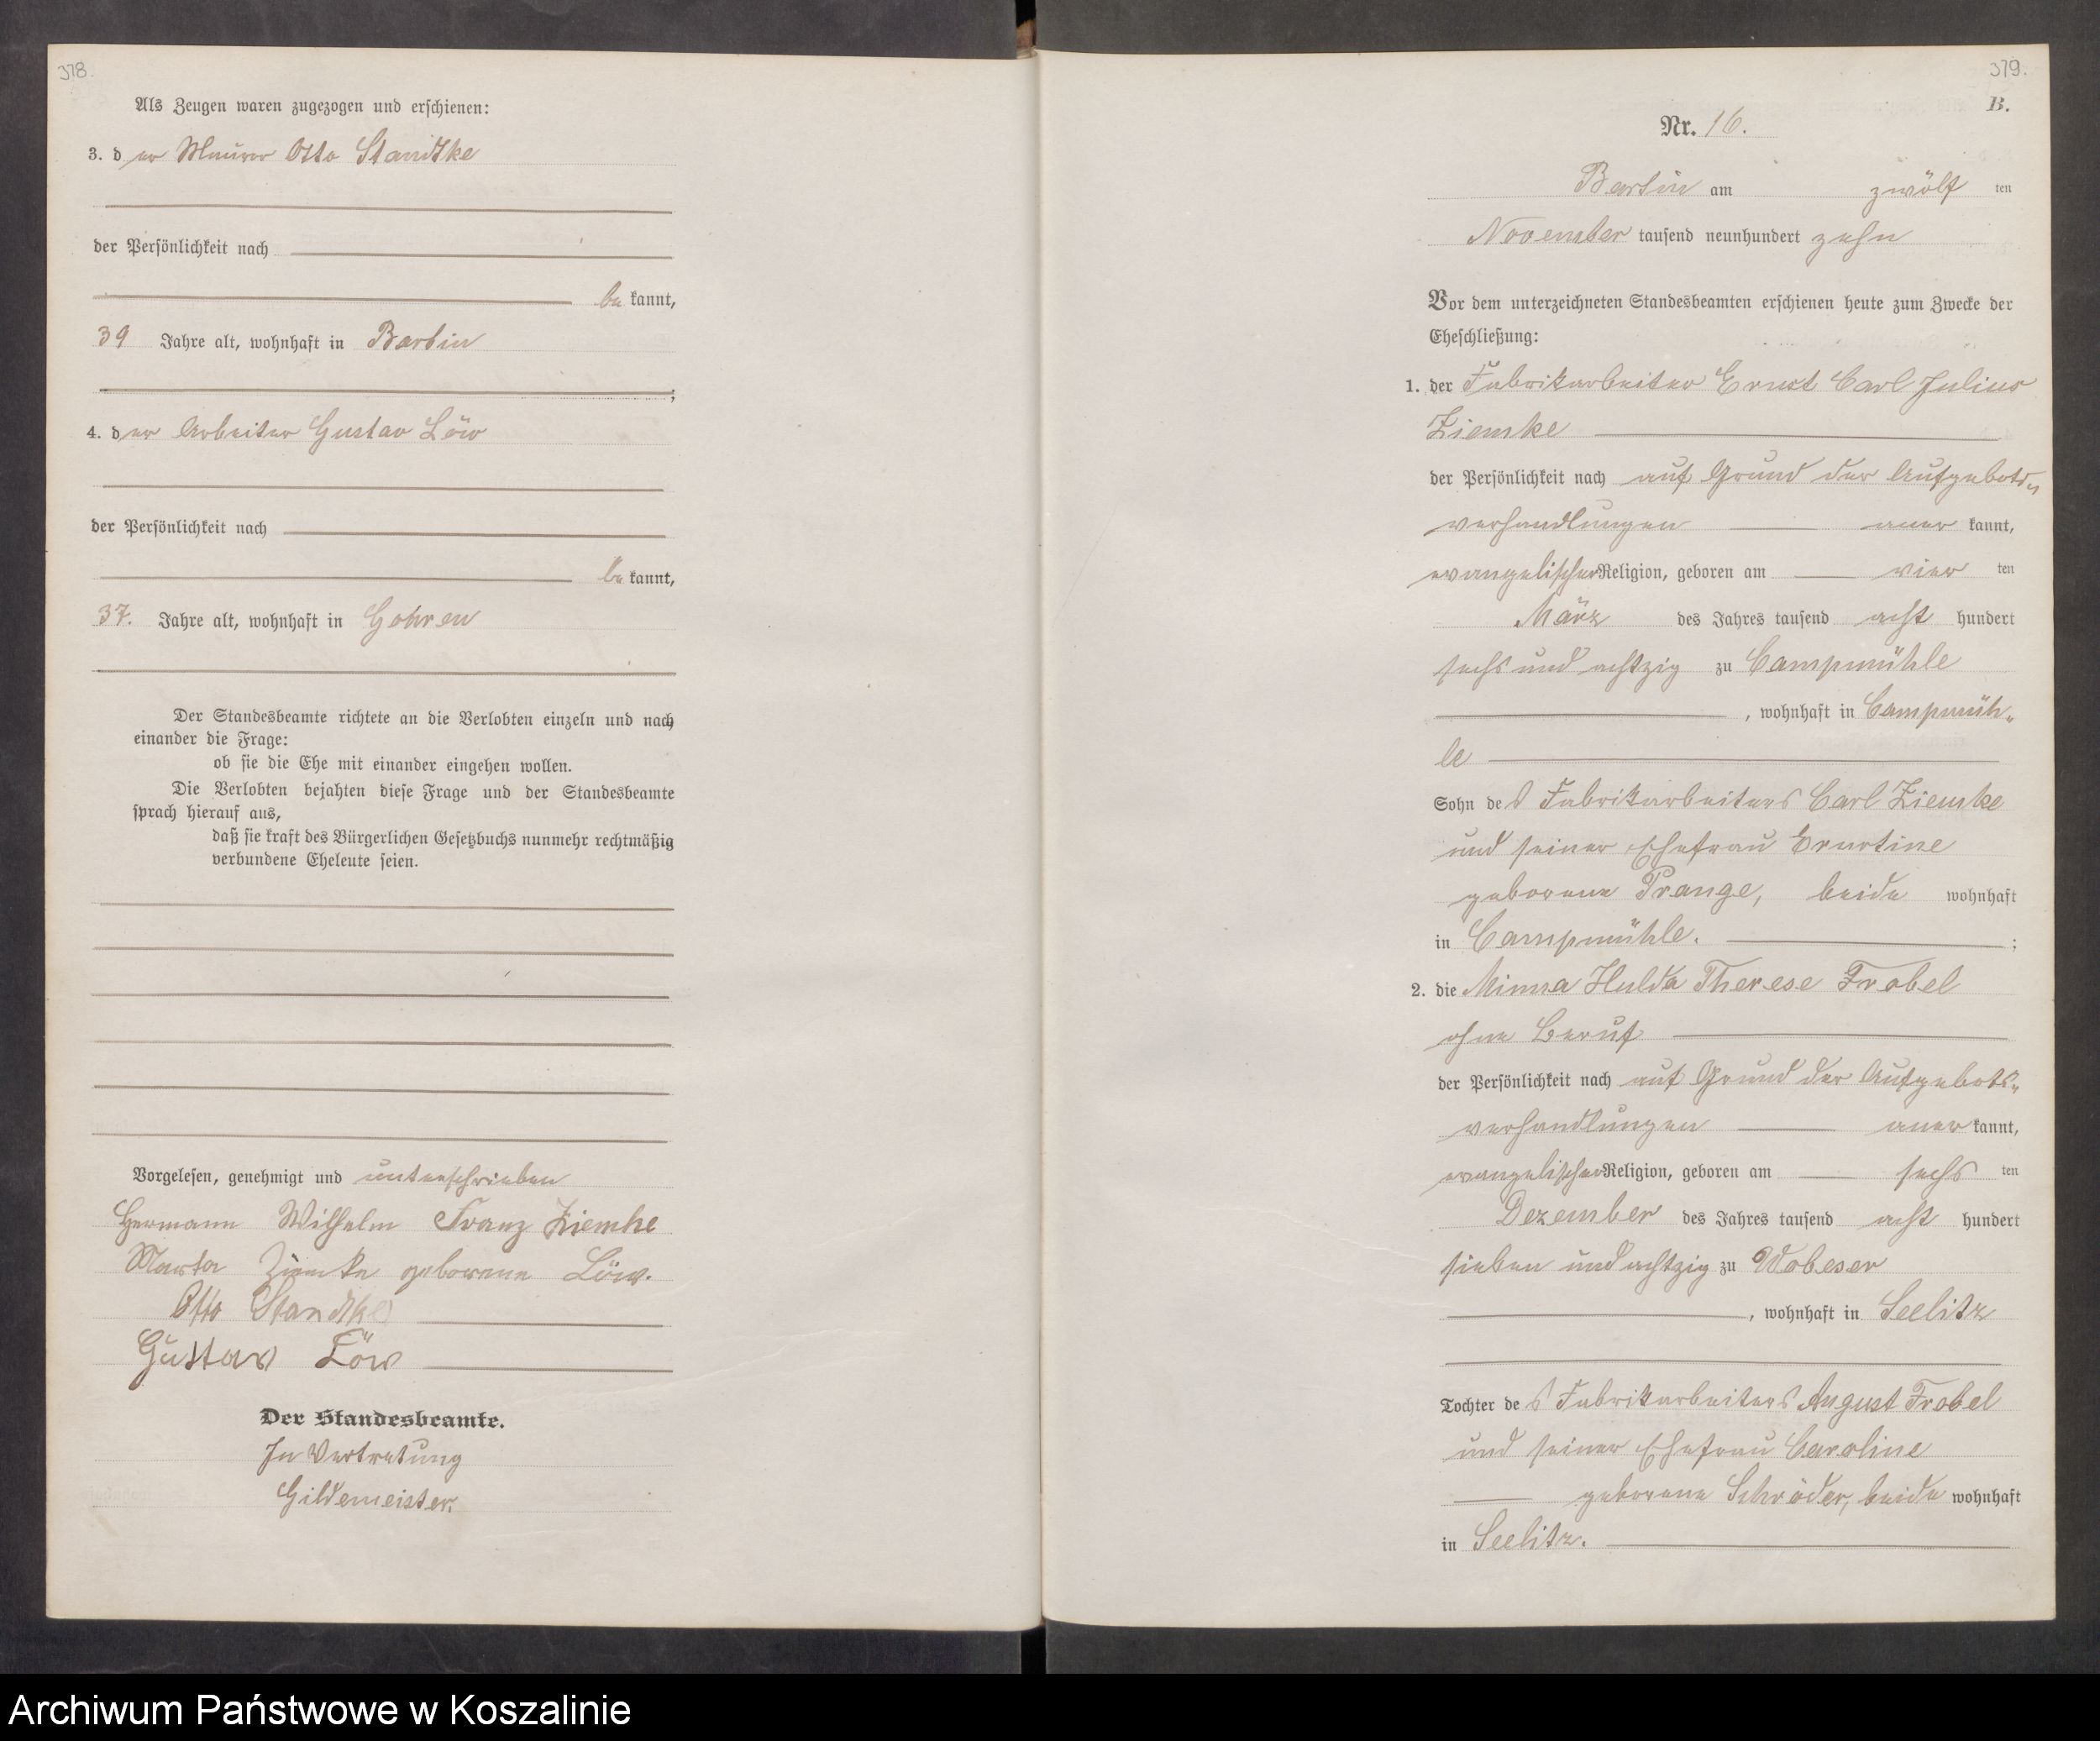 378.
Als Zeugen waren zugezogen und erschienen:
3. der Maurer Otto Standtke
der Persönlichkeit nach
be kannt,
39 Jahre alt, wohnhaft in Bartin
;
4. der Arbeiter Gustav Löw
der Persönlichkeit nach
be kannt,
37. Jahre alt, wohnhaft in Gohren
Der Standesbeamte richtete an die Verlobten einzeln und nach
einander die Frage:
ob sie die Ehe mit einander eingehen wollen.
Die Verlobten bejahten diese Frage und der Standesbeamte
sprach hierauf aus,
daß sie kraft des Bürgerlichen Gesetzbuchs nunmehr rechtmäßig
verbundene Eheleute seien.
Vorgelesen, genehmigt und unterschrieben
Hermann Wilhelm Franz Ziemke
Marta Ziemke geborene Löw.
Otto Standtke
Gustav Löw
Der Standesbeamte.
In Vertretung
Gildemeister.
379.
B.
Nr. 16.
Bartin am zwölf ten
November tausend neunhundert zehn
Vor dem unterzeichneten Standesbeamten erschienen heute zum Zwecke der
Eheschließung:
1. der Fabrikarbeiter Ernst Carl Julius
Ziemke
der Persönlichkeit nach auf Grund der Aufgebots„
verhandlungen aner kannt,
evangelischer Religion, geboren am vier ten
März des Jahres tausend acht hundert
sechs und achtzig zu Campmühle
, wohnhaft in Campmüh„
le
Sohn des Fabrikarbeiters Carl Ziemke
und seiner Ehefrau Ernstine
geborene Prange, beide wohnhaft
in Campmühle. ;
2. die Minna Hulda Therese Frobel
ohne Beruf
der Persönlichkeit nach auf Grund der Aufgebots„
verhandlungen aner kannt,
evangelischer Religion, geboren am sechs ten
Dezember des Jahres tausend acht hundert
sieben und achtzig zu Wobeser
, wohnhaft in Seelitz
Tochter des Fabrikarbeiters August Frobel
und seiner Ehefrau Caroline
geborene Schröder, beide wohnhaft
in Seelitz.
Archiwum Państwowe w Koszalinie